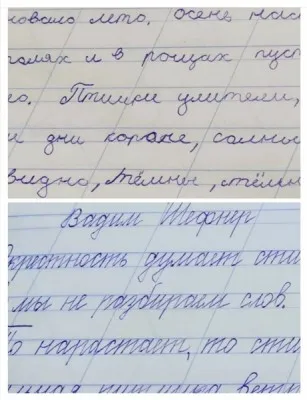 новало лето. Осень нас
полях и в рощах пуст
о. Птички улетели,
и дни короче, солны
видно, тёмны, тёмны
Вадим Шефнер
Окрестность думает сти
мы не разбираем слов.
То нарастает, то сти